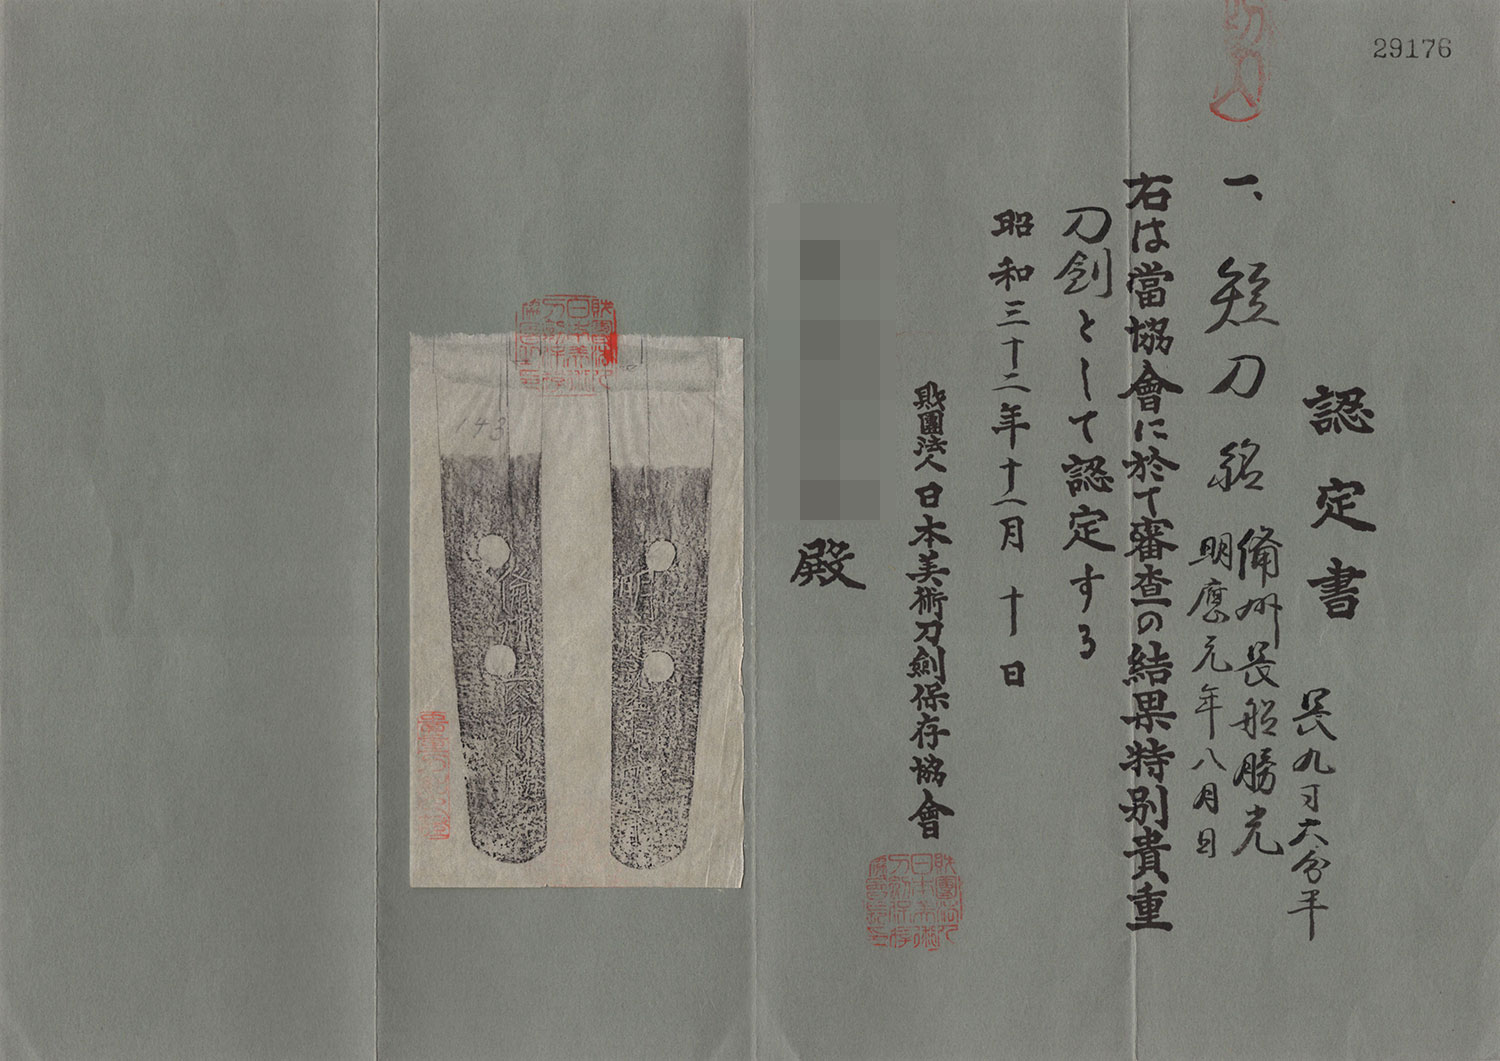 29176
認定書
一、短刀 銘 備州長船勝光
明應元年八月日
長九寸六分半
右は當協會に於て審査の結果特別貴重
刀劍として認定する
昭和三十二年十一月十日
財團法人日本美術刀劍保存協會
殿
143